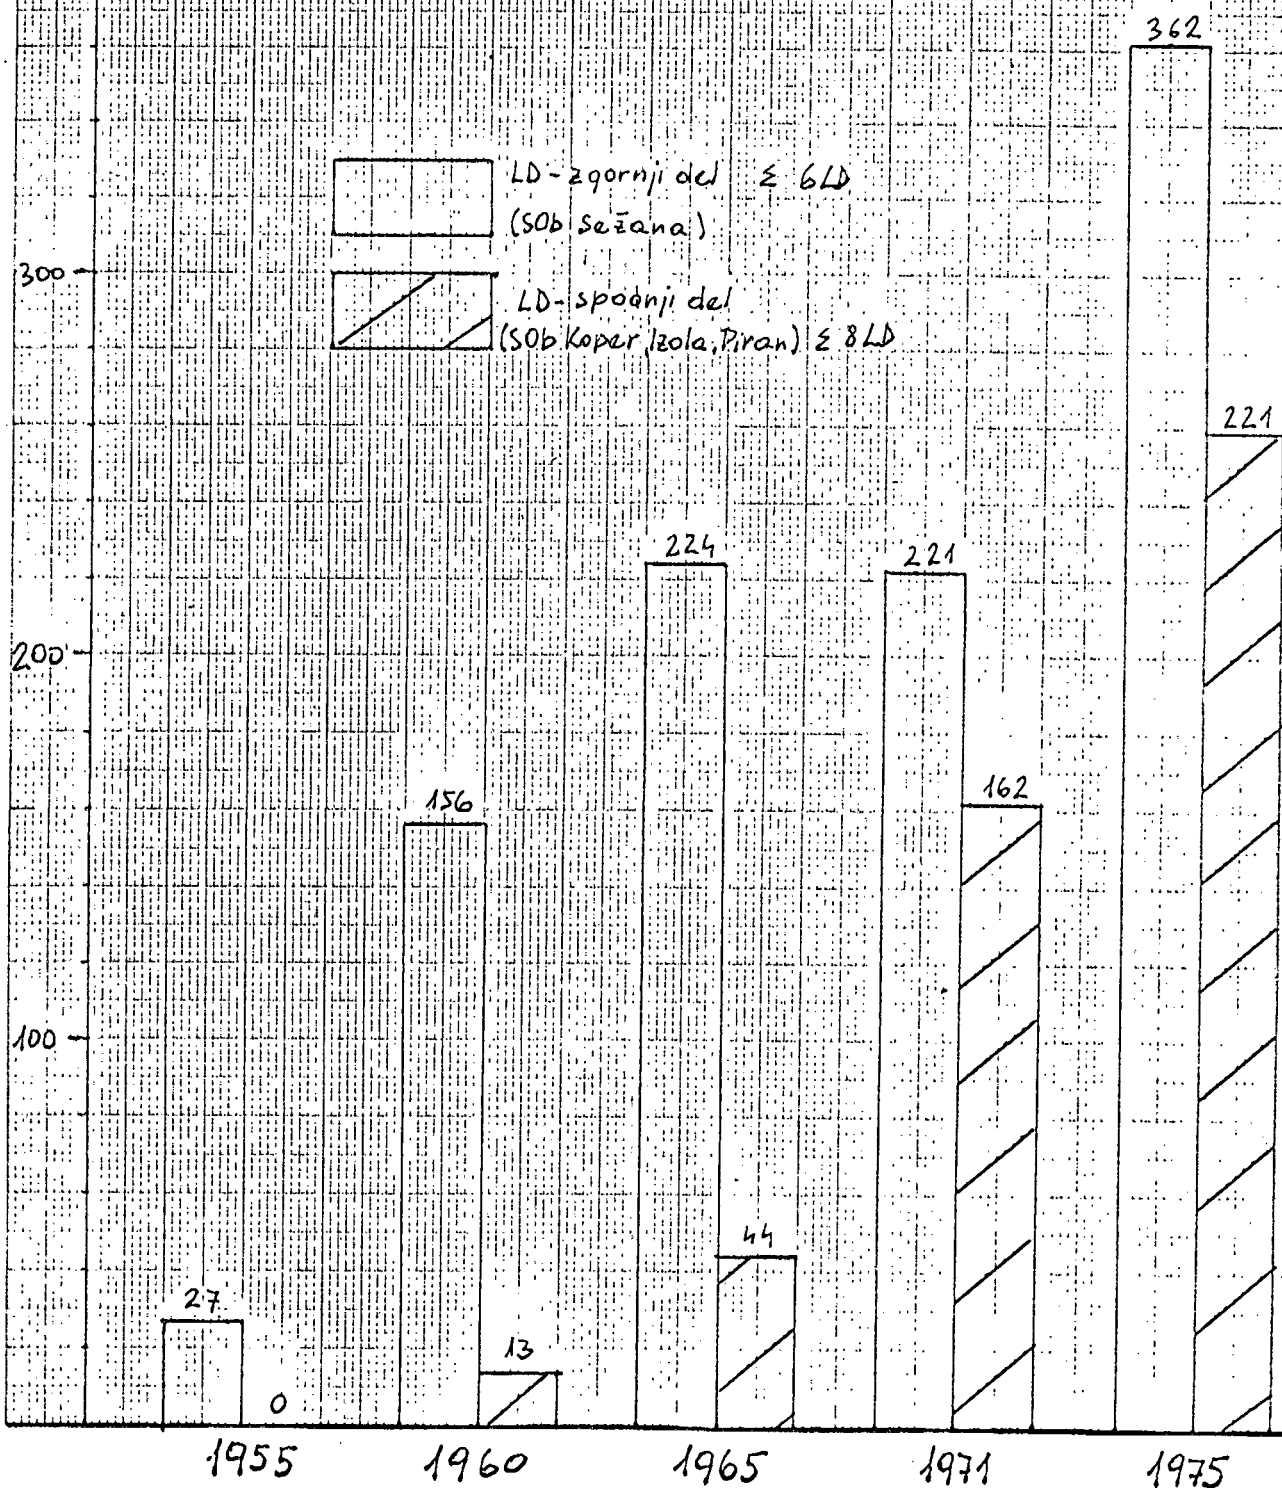 362
LD-zgornji del Σ 6LD
(SOb Sežana)
300
LD-spodnji del
(SOb Koper, Izola, Piran) Σ 8LD
221
224
221
200
156
162
100
44
27
13
0
1955 1960 1965 1971 1975